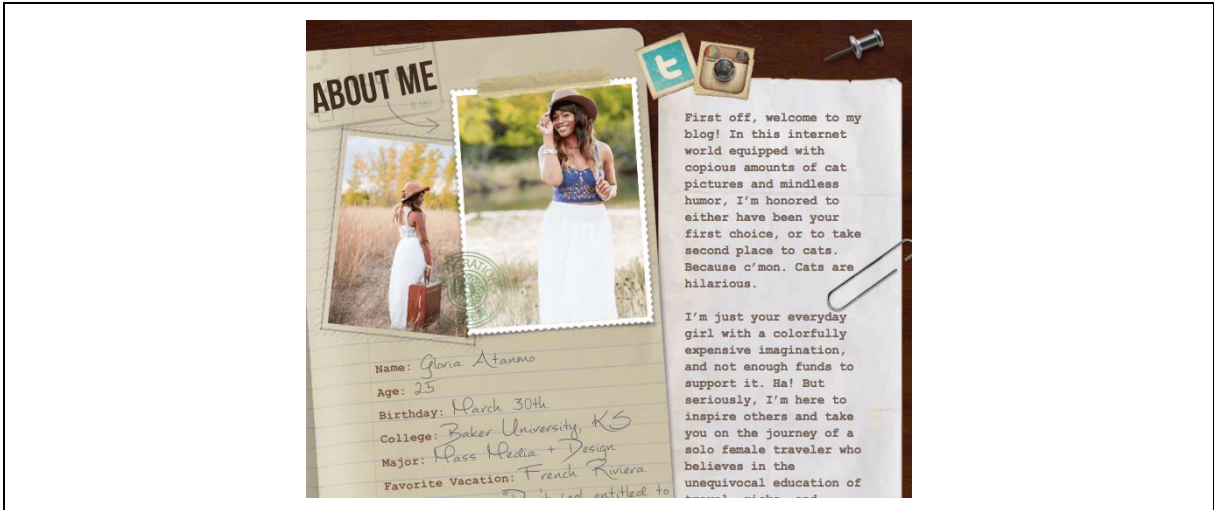 ABOUT ME
Name: Gloria Atanmo
Age: 25
Birthday: March 30th
College: Baker University, KS
Major: Mass Media + Design
Favorite Vacation: French Riviera
entitled to
First off, welcome to my
blog! In this internet
world equipped with
copious amounts of cat
pictures and mindless
humor, I'm honored to
either have been your
first choice, or to take
second place to cats.
Because c'mon. Cats are
hilarious.
I'm just your everyday
girl with a colorfully
expensive imagination,
and not enough funds to
support it. Ha! But
seriously, I'm here to
inspire others and take
you on the journey of a
solo female traveler who
believes in the
unequivocal education of